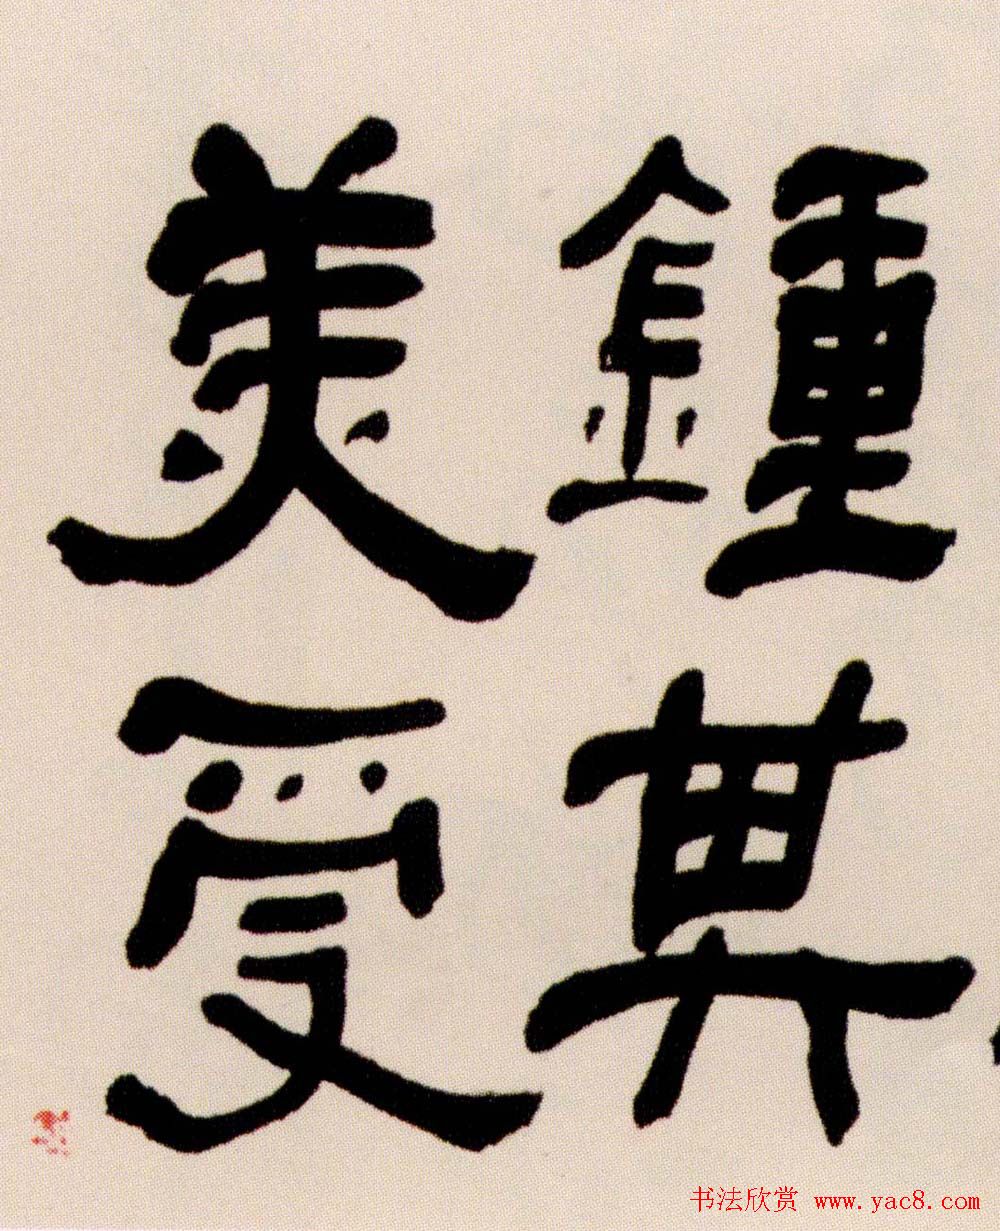 鍾其
美受
书法欣赏 www.yac8.com